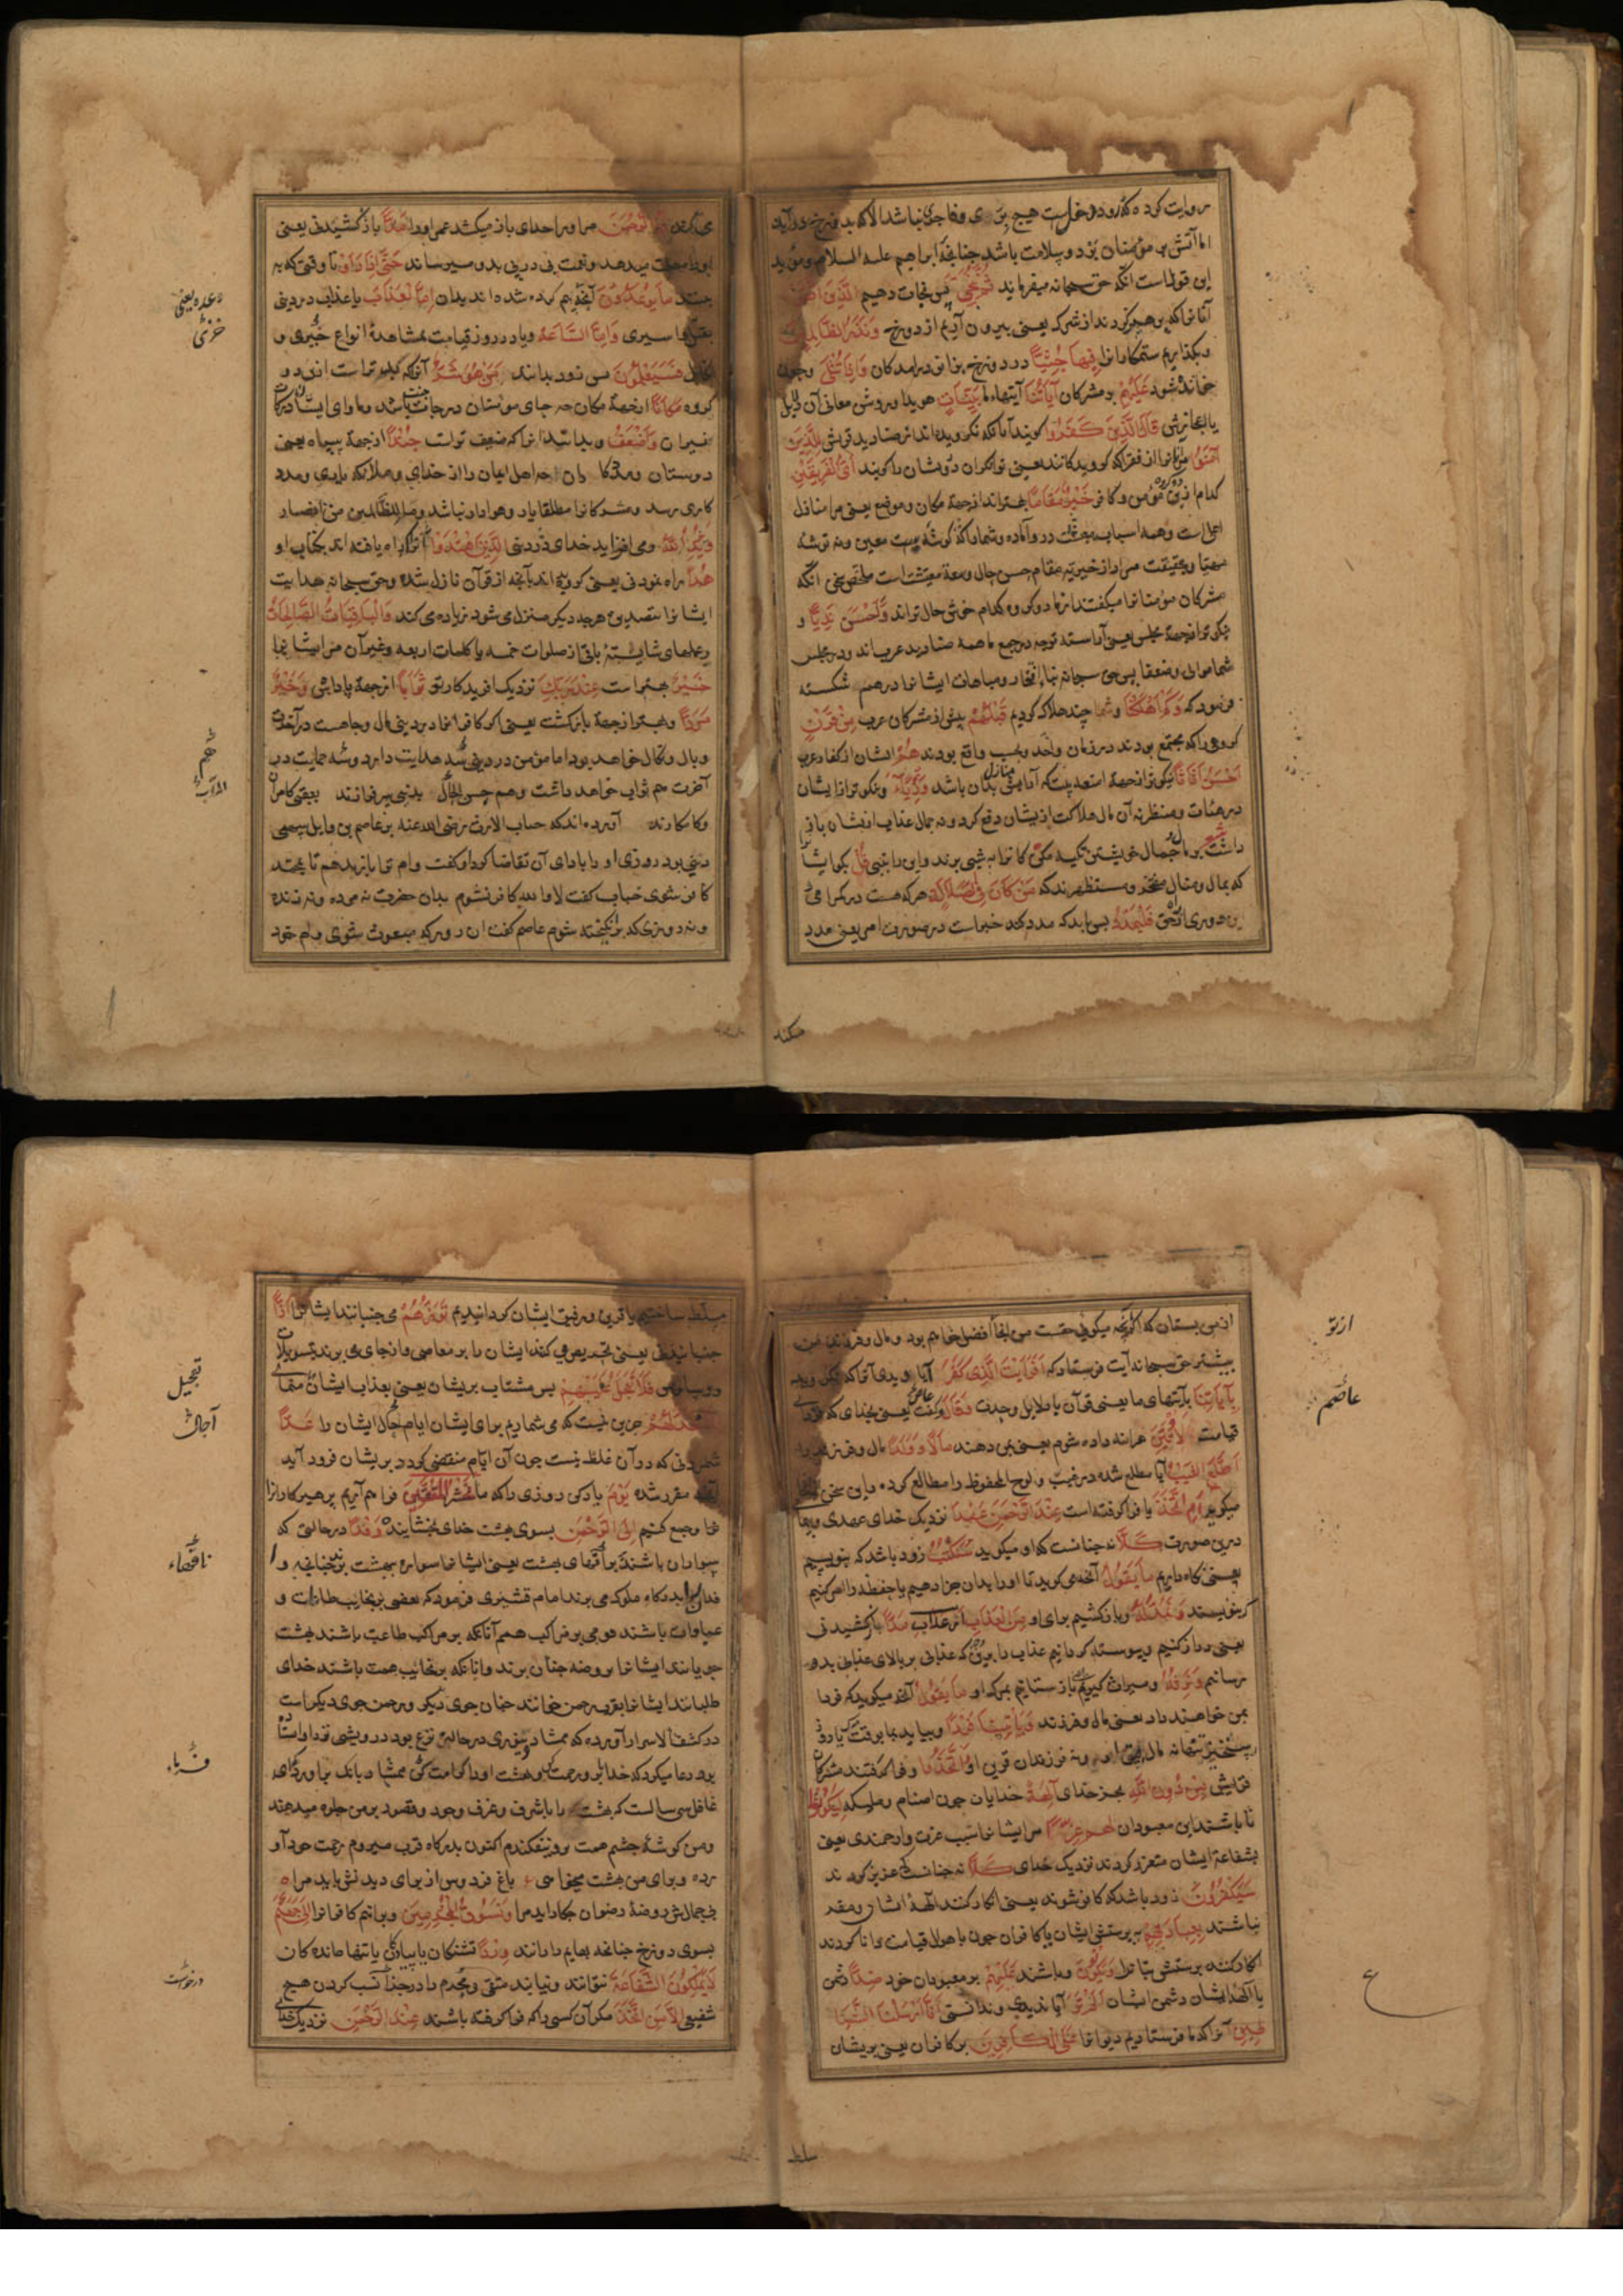 روایت کرده که ورود دخولست هیچ بری و فاجری نباشد الا که بدوزخ درآید
اما آتش بر مؤمنان برد و سلامت باشد چنانچه ابراهیم علیه السلام و مؤید
این قولست آنکه حق سبحانه میفرماید ثُمَّ نُنَجِّی پس نجات دهیم الَّذِینَ اتَّقَوْا
آنانرا که پرهیز کردند از شرک یعنی بیرون آریم از دوزخ وَنَذَرُ الظَّالِمِینَ
و بگذاریم ستمکارانرا فِیهَا جِثِیًّا در دوزخ بزانو درآمدکان وَإِذَا تُتْلَی و چون
خوانده شود عَلَیْهِمْ بر مشرکان آیَاتُنَا آیتهاء ما بَیِّنَاتٍ هویدا و روشن معانی آن
قَالَ الَّذِینَ کَفَرُوا کویند آنانکه نکرویده اند از صنادید قریش لِلَّذِینَ
آمَنُوا مر آنانرا از فقرا که کرویدکانند یعنی توانکران درویشان را کویند أَیُّ الْفَرِیقَیْنِ
کدام ازین دو کروه مؤمن و کافر خَیْرٌ مَقَامًا بهتراند از جهة مکان و موضع یعنی مر منازل
مهیا و بحقیقت مراد از خیریت مقام حسن حال و سعة معیشت است ملخص سخن آنکه
مشرکان مؤمنانرا میکفتند از ما دو کروه کدام خوش حال تراند وَأَحْسَنُ نَدِیًّا و
نیکوتر از جهة مجلس یعنی آراسته تر چه در مجمع ما همه صنادید عرب اند و در مجلس
شما موالی و ضعفا پس حق سبحانه بناء افتخار و مباهات ایشانرا درهم شکسته
فرمود که وَکَمْ أَهْلَکْنَا و چند هلاک کردیم قَبْلَهُمْ پیش از مشرکان عرب مِنْ قَرْنٍ
کروهی را که مجتمع بودند در زمان واحد هُمْ ایشان از کفار عرب
أَحْسَنُ أَثَاثًا نیکوتر از جهة امتعه بیت که آرایش منازل بدان باشد وَرِئْیًا و نیکوتر از ایشان
در هیئات و منظر نه آن مال هلاکت از ایشان دفع کرد و نه جمال عذاب از ایشان باز
قُلْ بکو ایشانرا
که بمال و منال مفتخر و مستظهرند که مَنْ کَانَ فِی الضَّلَالَةِ هر که هست در کمراهی
و دوری از راه حق فَلْیَمْدُدْ پس باید که مدد کند خبر است در صورت امر یعنی مدد
میکند
می کند لَهُ الرَّحْمَنُ مر او را خدای باز میکشد عمر او را مَدًّا باز کشیدنی یعنی
او را مهلت میدهد و نعمت پی در پی بدو میرساند حَتَّی إِذَا رَأَوْا تا وقتی که به
بینند مَا یُوعَدُونَ آنچه بیم کرده شده اند بدان إِمَّا الْعَذَابَ یا عذاب در دنیی
بقتل و اسیری وَإِمَّا السَّاعَةَ و یا در روز قیامت بمشاهدهٔ انواع خزی و
فَسَیَعْلَمُونَ پس زود بدانند مَنْ هُوَ شَرٌّ آنرا که بدتر است ازین دو
کروه مَکَانًا از جهة مکان چه جای مؤمنان درجات جنت باشد و ماوای ایشان درکات
نیران وَأَضْعَفُ و بدانند آنرا که ضعیف تر است جُنْدًا از جهة سپاه یعنی
دوستان و مددکاران چه اهل ایمان را از خدای و ملائکه یاری و مدد
کاری رسد و مشرکانرا مطلقا یار و هوادار نباشد وما للظالمین من انصار
وَیَزِیدُ اللَّهُ و می افزاید خدای در دنیی الَّذِینَ اهْتَدَوْا آنانرا که راه یافته اند بکتاب او
هُدًی راه نمودنی یعنی کرویده اند بآنچه از قرآن نازل شده و حق سبحانه هدایت
ایشانرا بتصدیق هر چه دیکر منزل می شود زیاده می کند وَالْبَاقِیَاتُ الصَّالِحَاتُ
و عملهای شایستهٔ باقی از صلوات خمسه یا کلمات اربعه و غیر آن مر ایشانرا
خَیْرٌ بهتر است عِنْدَ رَبِّکَ نزدیک آفریدکار تو ثَوَابًا از جهة پاداش وَخَیْرٌ
مَرَدًّا و بهتر از جهة بازکشت یعنی اکر کافرانرا در دنیی مال و جاهست در آخرت
وبال و نکال خواهد بود اما مؤمن در دنیی هدایت دارد و حمایت در
آخرت هم ثواب خواهد داشت و هم حسن المآب
و کامکارند آورده اند که خباب الارت رضی الله عنه بر عاصم بن وایل سهمی
دینی بود روزی او را بادای آن تقاضا کرد او کفت وام ترا باز ندهم تا بمحمد
کافر نشوی خباب کفت لا والله کافر نشوم بدان حضرت نه مرده و نه زنده
و نه در روزی که برانکیخته شوم عاصم کفت آن روز که مبعوث شوی وام خود
وعده یعنی
خزی
هم
المآب
از من بستان که اکر آنچه میکویی حقست من آنجا افضل خواهم بود و مال و فرزند من
بیشتر حق سبحانه آیت فرستاد که أَفَرَأَیْتَ الَّذِی کَفَرَ آیا دیدی آنرا که نکروید
بِآیَاتِنَا بآیتهای ما یعنی قرآن یا دلایل وحدت وَقَالَ و کفت عاص یعنی بخدای که فردای
قیامت لَأُوتَیَنَّ هر آینه داده شوم یعنی بمن دهند مَالًا وَوَلَدًا مال و فرزند
أَطَّلَعَ الْغَیْبَ آیا مطلع شده در غیب و لوح المحفوظ را مطالعه کرده و این سخن
میکوید أَمِ اتَّخَذَ یا فرا کرفته است عِنْدَ الرَّحْمَنِ عَهْدًا نزدیک خدای عهدی
درین صورت کَلَّا نه چنانست که او میکوید سَنَکْتُبُ زود باشد که بنویسیم
یعنی نکاه داریم مَا یَقُولُ آنچه می کوید تا او را بدان جزا دهیم یا حفظه را امر کنیم
که بنویسند وَنَمُدُّ لَهُ و باز کشیم برای او مِنَ الْعَذَابِ از عذاب مَدًّا باز کشیدنی
یعنی دراز کنیم و پیوسته کردانیم عذاب را که عذابی بر بالای عذابی بدو
رسانیم وَنَرِثُهُ و میراث کیریم یعنی باز ستانیم بمرک او مَا یَقُولُ آنچه میکوید که فردا
بمن خواهند داد یعنی مال و فرزند وَیَأْتِینَا فَرْدًا و بیاید بما بوقت مرک یا روز
رستخیز تنها نه مال و نه فرزندان قرین او وَاتَّخَذُوا و فرا کرفتند مشرکان
قریش مِنْ دُونِ اللَّهِ بجز خدای آلِهَةً خدایان چون اصنام و ملئکه لِیَکُونُوا
تا باشند این معبودان لَهُمْ عِزًّا مر ایشانرا سبب عزت و ارجمندی یعنی
بشفاعة ایشان متعزز کردند نزدیک خدای کَلَّا نه چنانست که عزیز کردند
سَیَکْفُرُونَ زود باشد که کافر شوند یعنی انکار کنند الههٔ ایشان و مقر
نباشند بِعِبَادَتِهِمْ به پرستش ایشان یا کافران چون باهوال قیامت دانا کردند
انکار کنند پرستش بتانرا وَیَکُونُونَ و باشند عَلَیْهِمْ بر معبودان خود ضِدًّا دشمن
یا الههٔ ایشان دشمن ایشان أَلَمْ تَرَ آیا ندیدی و ندانستی أَنَّا أَرْسَلْنَا الشَّیَاطِینَ
آنرا که ما فرستادیم دیوانرا عَلَی الْکَافِرِینَ بر کافران یعنی بریشان
از تو
عاصم
ع
مسلط
مسلط ساختیم یا قرین و رفیق ایشان کردانیدیم تَؤُزُّهُمْ می جنبانند ایشانرا أَزًّا
جنبانیدنی یعنی تحریص می کنند ایشان را بر معاصی و از جای می برند بتسویلات
فَلَا تَعْجَلْ عَلَیْهِمْ پس مشتاب بریشان یعنی بعذاب ایشان
نَعُدُّ لَهُمْ جز این نیست که می شماریم برای ایشان ایام آجال ایشان را عَدًّا
شمردنی که در آن غلط نیست چون آن ایام منقضی کردد بریشان فرود آید
آنچه مقرر شده یَوْمَ یاد کن روزی را که ما نَحْشُرُ الْمُتَّقِینَ فراهم آریم پرهیزکارانرا
و جمع کنیم إِلَی الرَّحْمَنِ بسوی بهشت خدای بخشاینده وَفْدًا در حالتی که
سواران باشند بر ناقهای بهشت یعنی ایشانرا سواره ببهشت برند چنانچه
ملوک می برند امام قشیری فرمود که بعضی بر نجایب طاعات و
عبادات باشند قومی بر مراکب همم آنانکه بر مراکب طاعت باشند بهشت
جویانند ایشانرا بروضه جنان برند و آنانکه بر نجایب همت باشند خدای
طلبانند ایشانرا بقرب رحمن خوانند جنان جوی دیکر و رحمن جوی دیکر است
در کشف الاسرار آورده که ممشاد دینوری در حالت نزع بود درویشی نزد او استاده
بود دعا میکرد که خدایا برو رحمت کن و بهشت او را کرامت کن ممشاد بانک برو زد که ای
غافل سی سالست که بهشت را با شرف و غرف وحور و قصور بر من جلوه میدهند
و من کوشهٔ چشم همت برو نیفکندم اکنون بدرکاه قرب میروم زحمت خود آورده
و برای من بهشت میخواهی باغ فردوس از برای دیدنش باید مرا
بی جمالش روضهٔ رضوان چکار آید مرا وَنَسُوقُ الْمُجْرِمِینَ و برانیم کافرانرا إِلَی جَهَنَّمَ
بسوی دوزخ چنانچه بهایم را رانند وِرْدًا تشنکان یا پیادکان یا تنها ماندکان
لَا یَمْلِکُونَ الشَّفَاعَةَ نتوانند و نیابند متقی و مجرم درخواست کردن هیچ
شفیعی إِلَّا مَنِ اتَّخَذَ مکر آن کسی را که فرا کرفته باشند عِنْدَ الرَّحْمَنِ نزدیک خدای
تعجیل
آجال
ناقهاء
درخواست